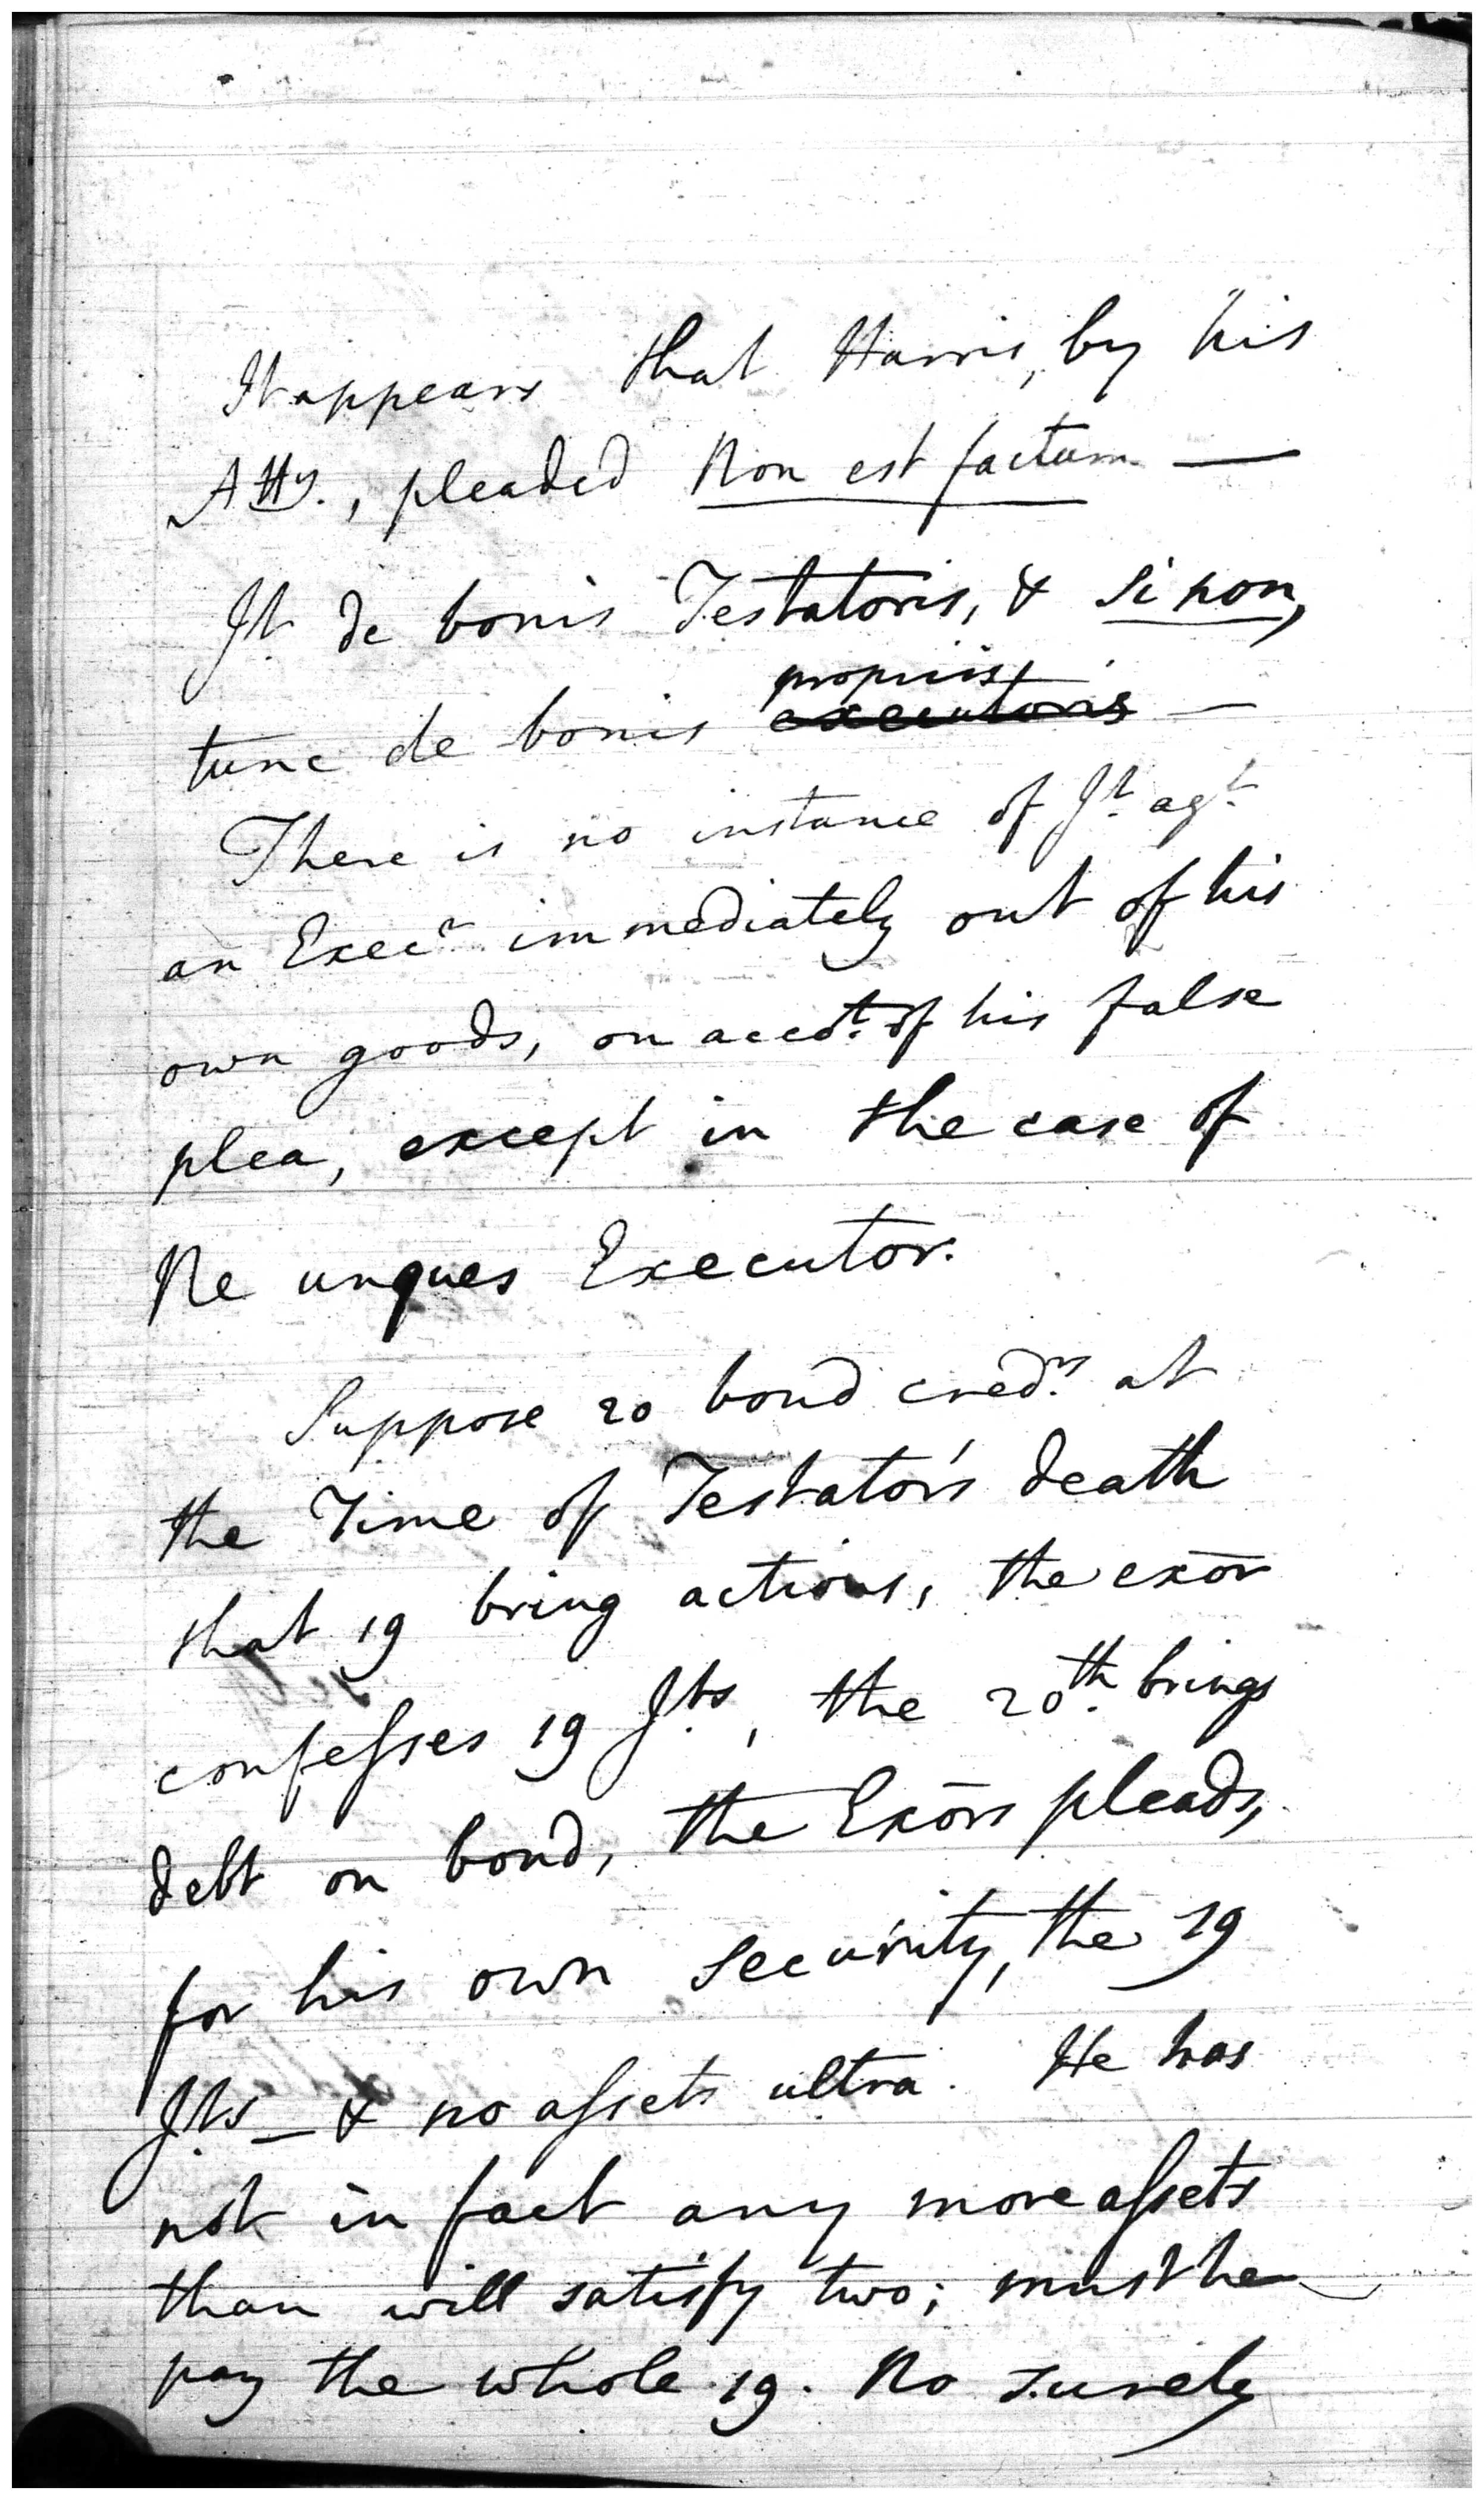 It appears that Harris, by his
Atty., pleaded Non est factum —
Jt. de bonis Testatoris, & si non,
tunc de bonis propriis executoris —
There is no instance of Jt. agt.
an Execr. immediately out of his
own goods, on accot. of his false
plea, except in the case of
Ne unques Executor.
Suppose 20 bond credrs. at
the Time of Testator's death
that 19 bring actions, the exor
confesses 19 Jts, the 20th. brings
debt on bond, the Exors pleads,
for his own security, the 19
Jts — & no assets ultra. He has
not in fact any more assets
than will satisfy two; must he
pay the whole 19. No surely